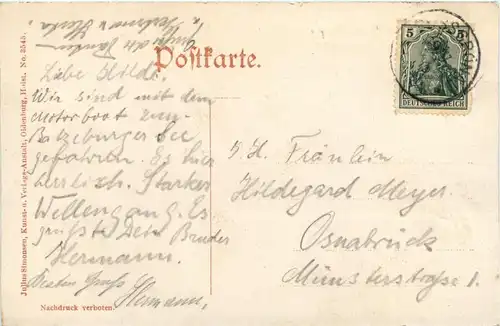 Postkarte.
Liebe Hilde!
Wir sind mit dem
Motorboot zum
Ratzeburger See
gefahren. Es hier
herrlich. Starker
Wellengang. Es
grüßt Dein Bruder
Hermann.
Besten Gruß
Hermann,
Frl. Fräulein
Hildegard Meyer.
Osnabrück
Münsterstraße 1.
5 5
DEUTSCHES REICH
Julius Simonsen, Kunst- u. Verlags-Anstalt, Oldenburg, Holst. No. 3545.
Nachdruck verboten.